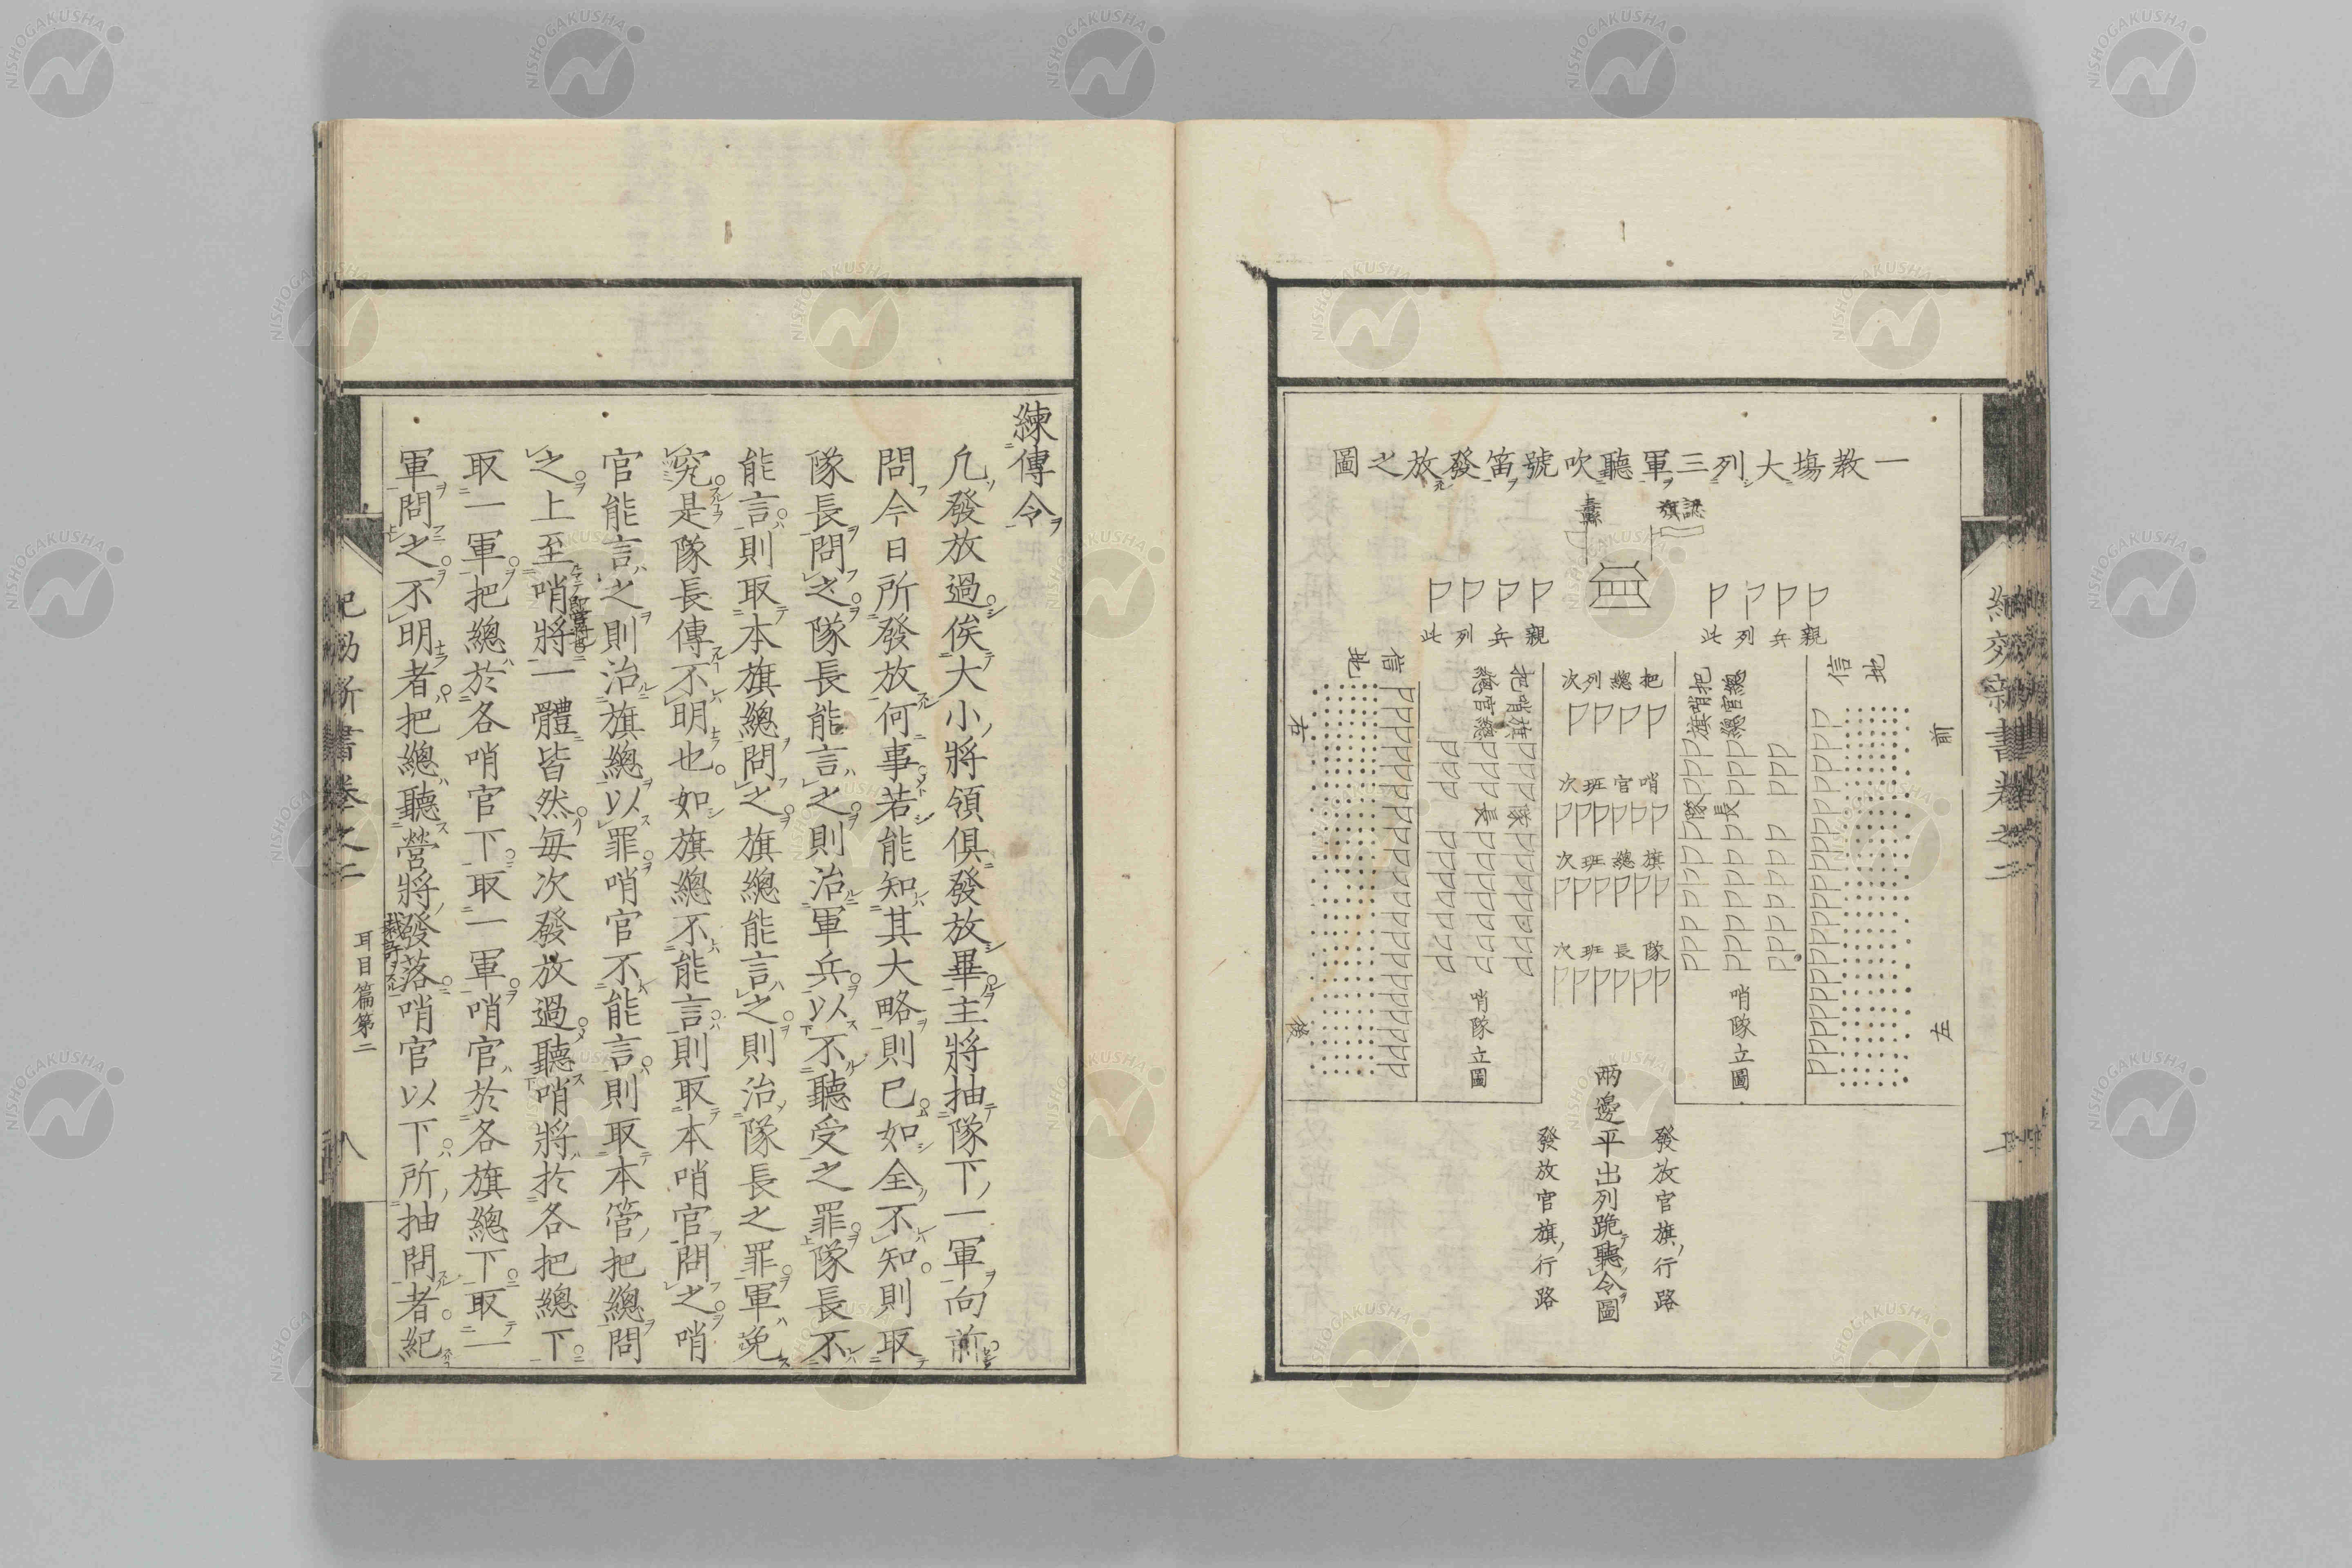 一教塲大列三軍聽吹號笛發放之圖
認旗
親兵列此
親兵列此
信地
信地
前
左
右
後
把總列次
哨官班次
旗總班次
隊長班次
把總
哨官
旗總
隊長
哨隊立圖
把總
哨官
旗總
隊長
哨隊立圖
發放官旗行路
兩邊平出列跪聽令圖
發放官旗行路
練傳令
凢發放過俟大小將領俱發放畢主將抽隊下一軍向前
問今日所發放何事若能知其大略則已如全不知則取
隊長問之隊長能言之則治軍兵以不聽受之罪隊長不
能言則取本旗總問之旗總能言之則治隊長之罪軍免
究是隊長傳不明也如旗總不能言則取本哨官問之哨
官能言之則治旗總以罪哨官不能言則取本管把總問
之上至哨將一體皆然毎次發放過聽哨將於各把總下
取一軍把總於各哨官下取一軍哨官於各旗總下取一
軍問之不明者把總聽營將發落哨官以下所抽問者紀
紀効新書巻之二
耳目篇第二
八